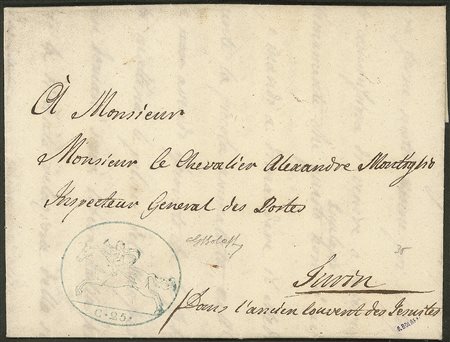 À Monsieur
Monsieur le Chevalier Alexandre Montiglio
Inspecteur General des Postes
Turin
Dans l'ancien Couvent des Jesuites
C. 25.